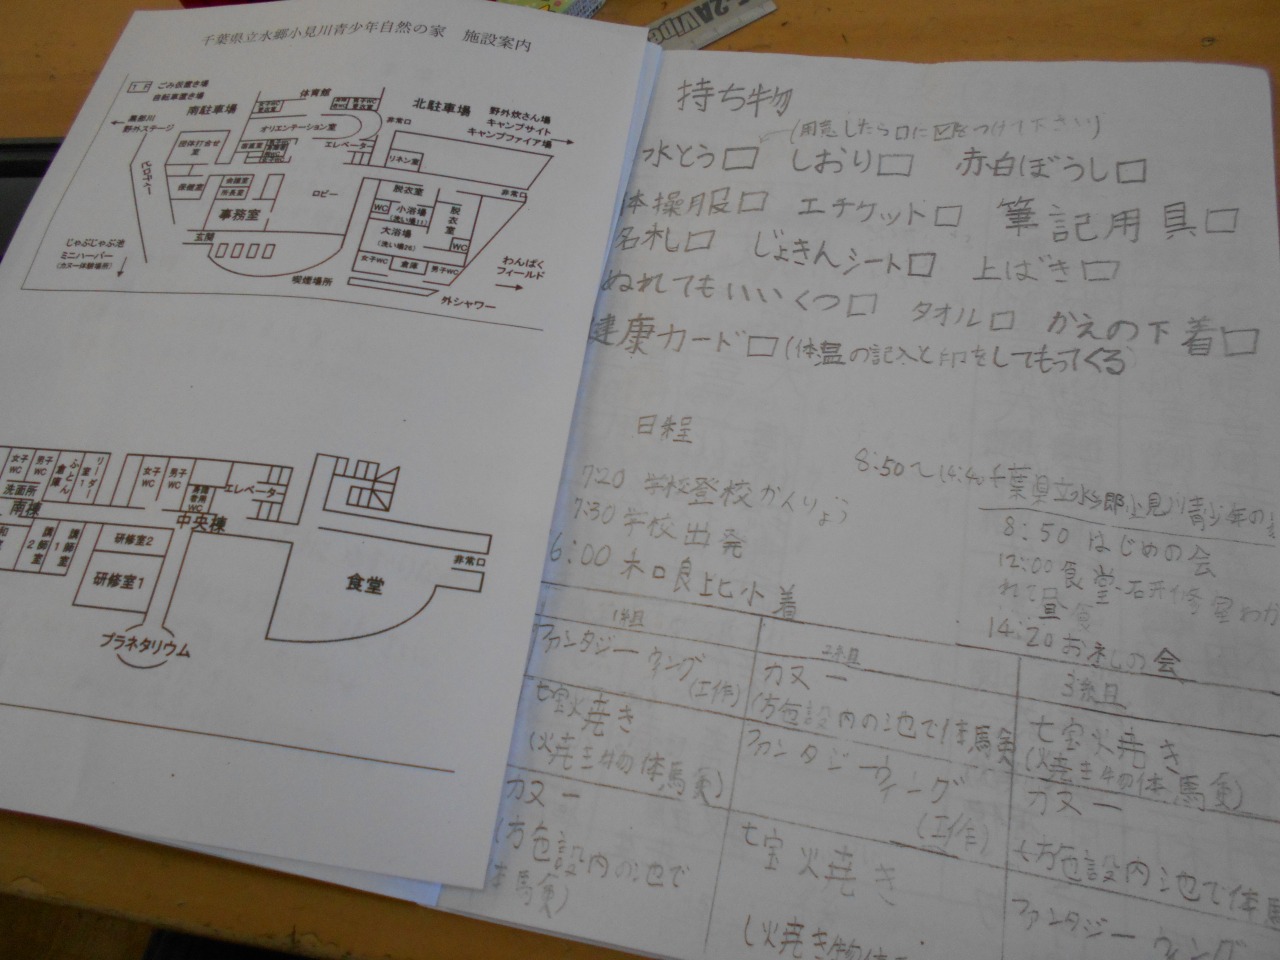 千葉県立水郷小見川青少年自然の家 施設案内
1F
ごみ仮置き場
自転車置き場
南駐車場
体育館
北駐車場
野外炊さん場
キャンプサイト
キャンプファイア場
黒部川
野外ステージ
オリエンテーション室
非常口
団体打合せ
室
エレベーター
リネン室
ピロティー
保健室
会議室
所長室
ロビー
脱衣室
非常口
事務室
WC
小浴場
脱衣室
大浴場
WC
玄関
女子WC
倉庫
男子WC
じゃぶじゃぶ池
ミニハーバー
(カヌー体験場所)
喫煙場所
わんぱく
フィールド
外シャワー
女子
WC
男子
WC
ふとん
倉庫
リーダー
室1
女子
WC
男子
WC
エレベーター
洗面所
南棟
中央棟
講師室2
講師室1
研修室2
研修室1
食堂
非常口
プラネタリウム
持ち物
(用意したら□に☑をつけて下さい)
水とう□ しおり□ 赤白ぼうし□
体操服□ エチケット□ 筆記用具□
名札□ じょきんシート□ 上ばき□
ぬれてもいいくつ□ タオル□ かえの下着□
健康カード□(体温の記入と印をしてもってくる)
日程
7:20 学校登校かんりょう
7:30 学校出発
6:00 木口良上比小着
8:50〜14:40千葉県立水郷小見川青少年の
8:50 はじめの会
12:00 食堂・石开修室わか
れて昼食
14:20 お礼の会
1組
2組
3組
ファンタジーウィング
(工作)
カヌー
(施設内の池で体験
七宝焼き
(焼き物体験)
七宝焼き
(焼き物体験)
ファンタジーウィング
(工作)
カヌー
(施設内池で体
カヌー
(施設内の池で
体験)
七宝焼き
(焼き物体
ファンタジーウィング